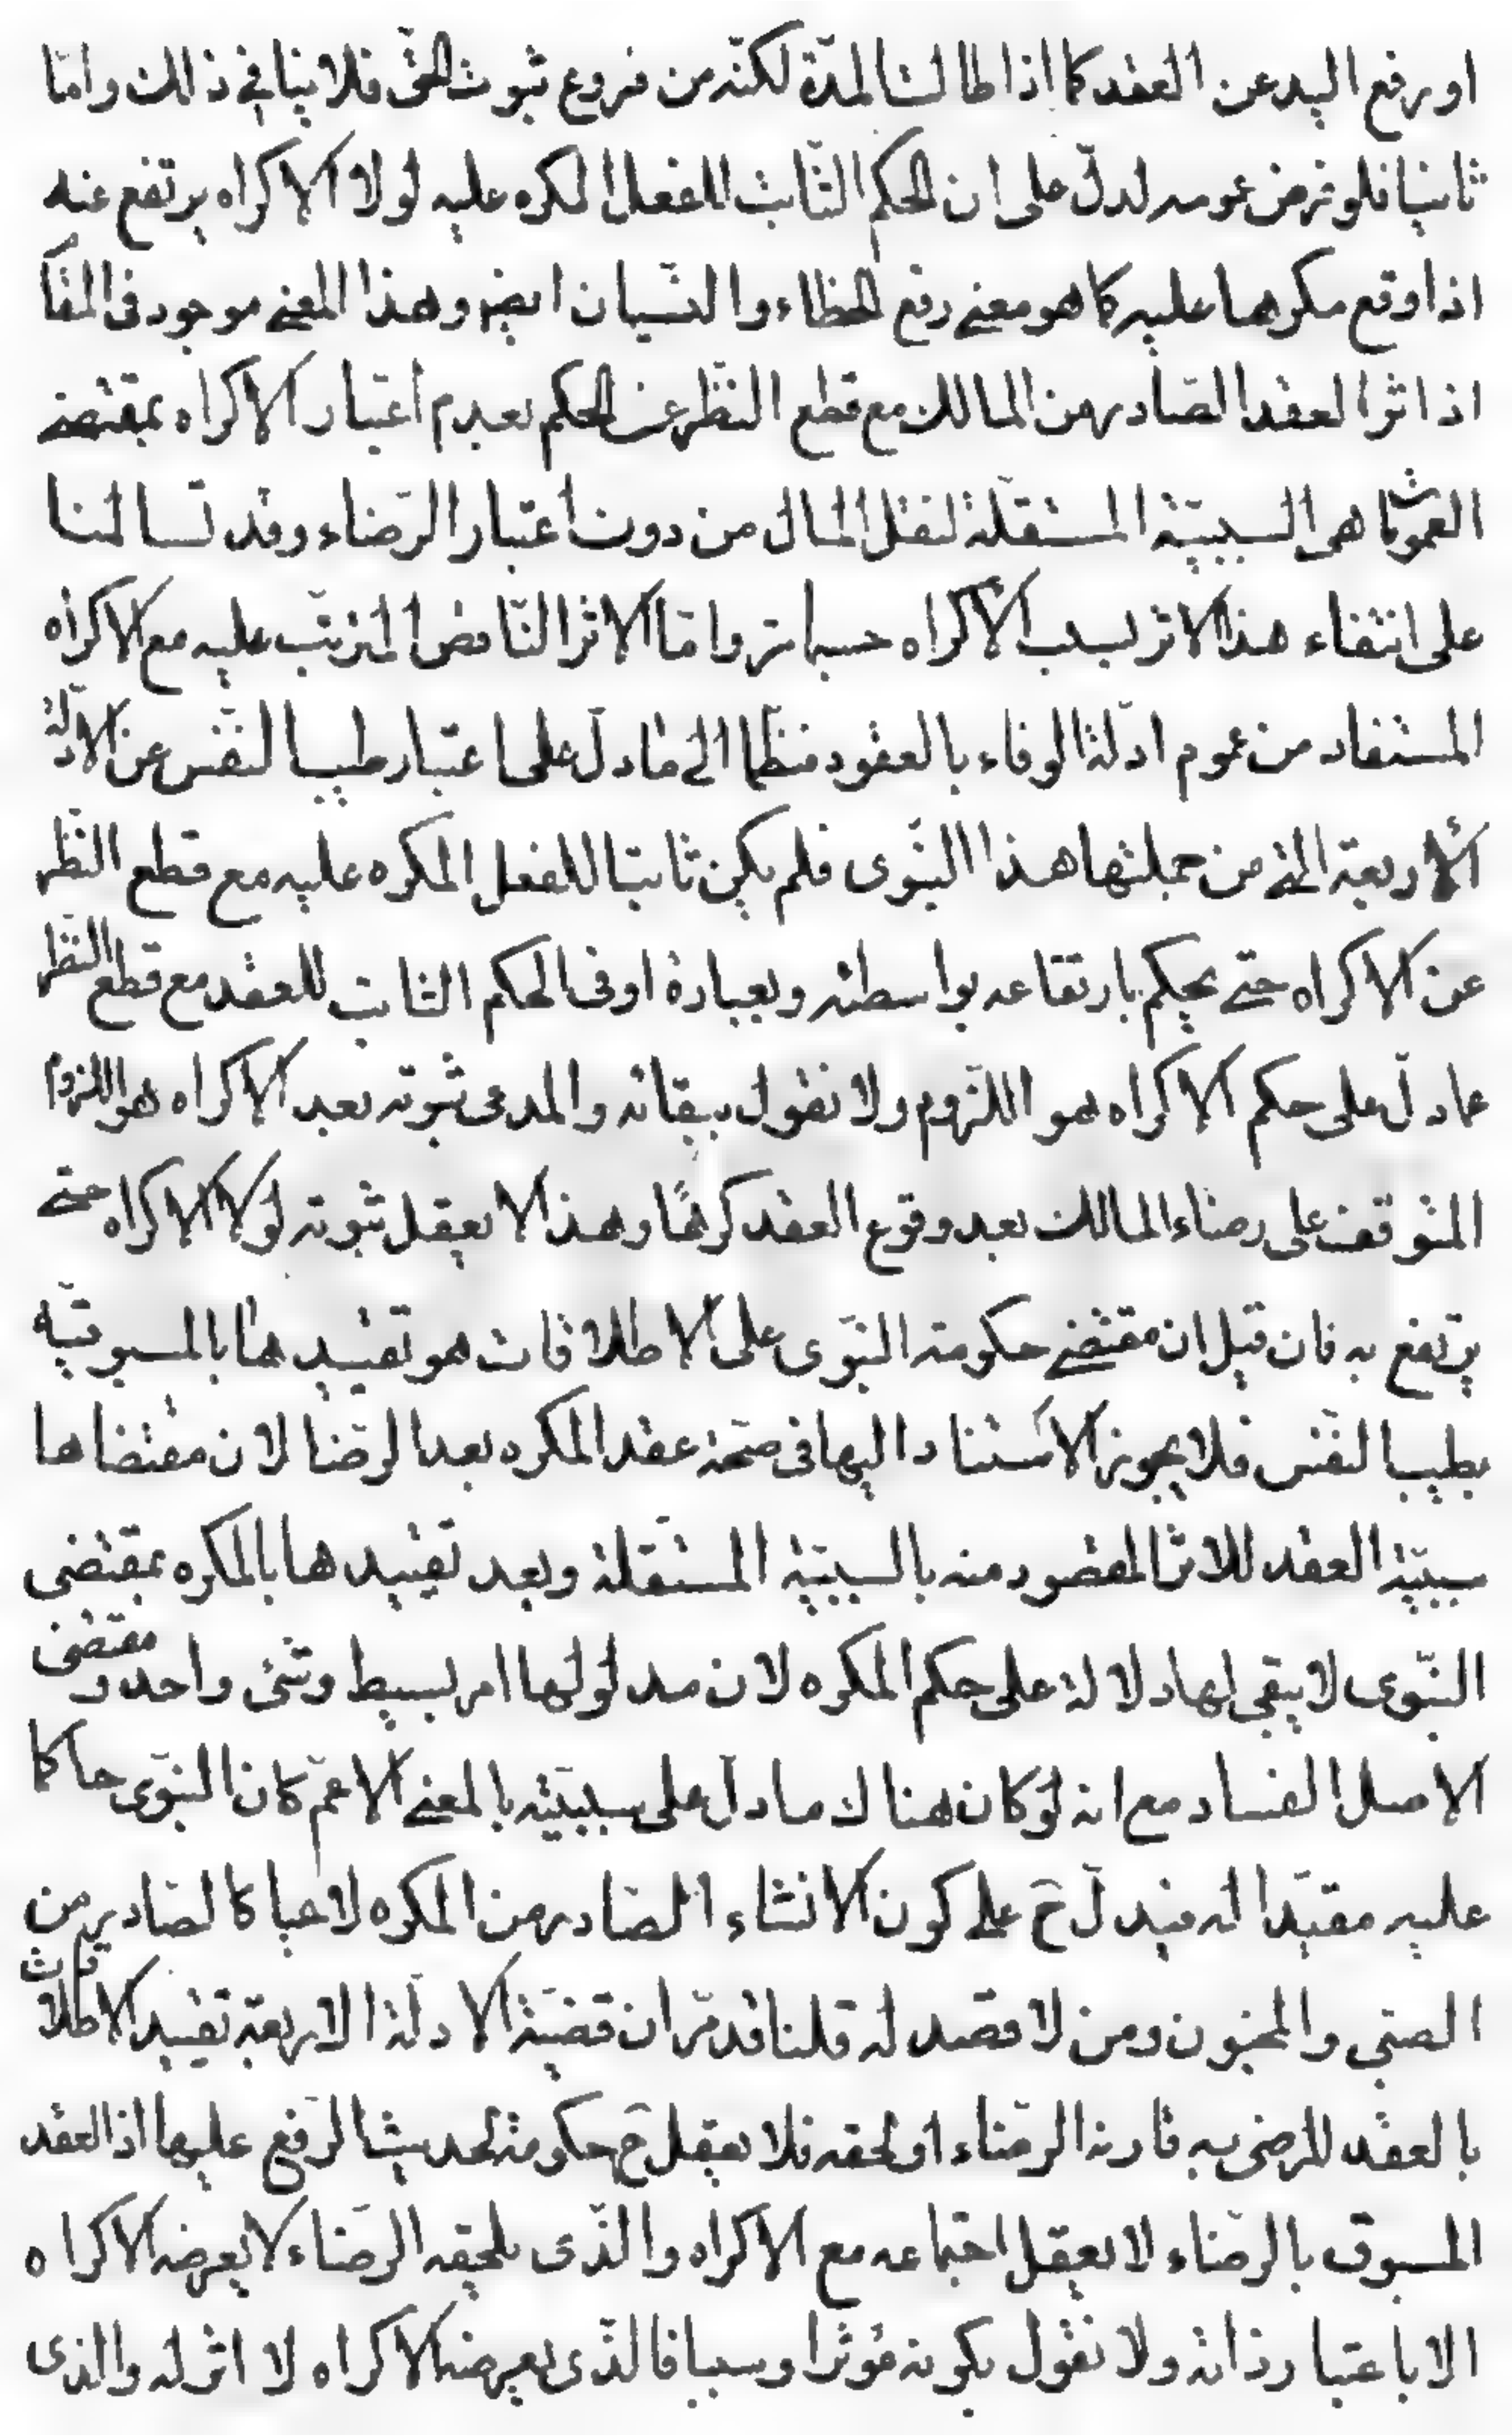 او رفع اليد عن العقد كما اذا طالت المدّة لكنّه من فروع ثبوت الحقّ فلا ينافى ذلك وامّا
ثانيا فلو فرض عومه لدلّ على ان الحكم الثّابت للفعل المكره عليه لولا الاكراه يرتفع عنه
اذا وقع مكرها عليه كما هو معنى رفع الخطاء والنّسيان ايضه وهذا المعنى موجود فى المقا
اذ اثر العقد الصّادر من المالك مع قطع النّظر عن الحكم بعدم اعتبار الاكراه بمقتضى
العموما هى السببيّة المستقلّة لنقل المال من دون اعتبار الرّضاء وقد تسالمنا
على انتفاء هذا الاثر بسبب الاكراه حسبما مر وامّا الاثر النّاقص المترتّب عليه مع الاكراه
المستفاد من عموم ادلّة الوفاء بالعقود منظما الى ما دلّ على اعتبار طيب النفس عن الادلّة
الاربعة الّتى من جملتها هذا النّبوى فلم يكن ثابتا للفعل المكره عليه مع قطع النّظر
عن الاكراه حتّى يحكم بارتفاعه بواسطته وبعبارة اوفى الحكم الثابت للعقد مع قطع النّظر
عما دلّ على حكم الاكراه هو اللّزوم ولا نقول ببقائه والمدعى ثبوته بعد الاكراه هو اللزوم
المتوقف على رضاء المالك بعد وقوع العقد كرهًا وهذا لا يعقل ثبوته لولا الاكراه حتّى
يرتفع به فان قيل ان مقتضى حكومة النّبوى على الاطلاقات هو تقييدها بالمسبوقيّة
بطيب النّفس فلا يجوز الاستناد اليها فى صحّة عقد المكره بعد الرّضا لان مقتضاها
سببيّة العقد للاثر المقصود منه بالسببيّة المستقلّة وبعد تقييدها بالمكره بمقتضى
النّبوى لا يبقى لها دلالة على حكم المكره لان مدلولها امر بسيط وشئ واحد ومقتضى
الاصل الفساد مع انه لو كان هناك ما دلّ على سببيّته بالمعنى الاعمّ كان النبوّى حاكما
عليه مقيّدا له فيدلّ ح على كون الانشاء الصّادر من المكره لاغيا كالصّادر من
الصبّى والمجنون ومن لا قصد له قلنا قد مرّ ان قضيّة الادلّة الاربعة تقييد الاطلاقات
بالعقد المرضى به قارنه الرّضاء او لحقه فلا يعقل ح حكومة لحديث الرّفع عليها اذ العقد
المسبوق بالرّضاء لا يعقل اجتماعه مع الاكراه والّذى يلحقه الرّضاء لا يعرضه الاكراه
الا باعتبار ذاته ولا نقول بكونه مؤثّرا وسببا فالّذى يعرضه الاكراه لا اثر له والذى